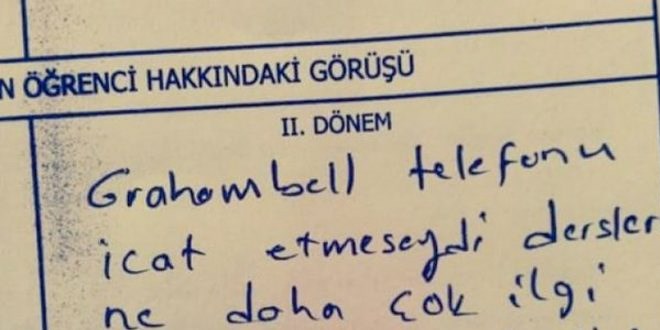 N ÖĞRENCİ HAKKINDAKİ GÖRÜŞÜ
II. DÖNEM
Grahambell telefonu
icat etmeseydi dersler
ne daha çok ilgi